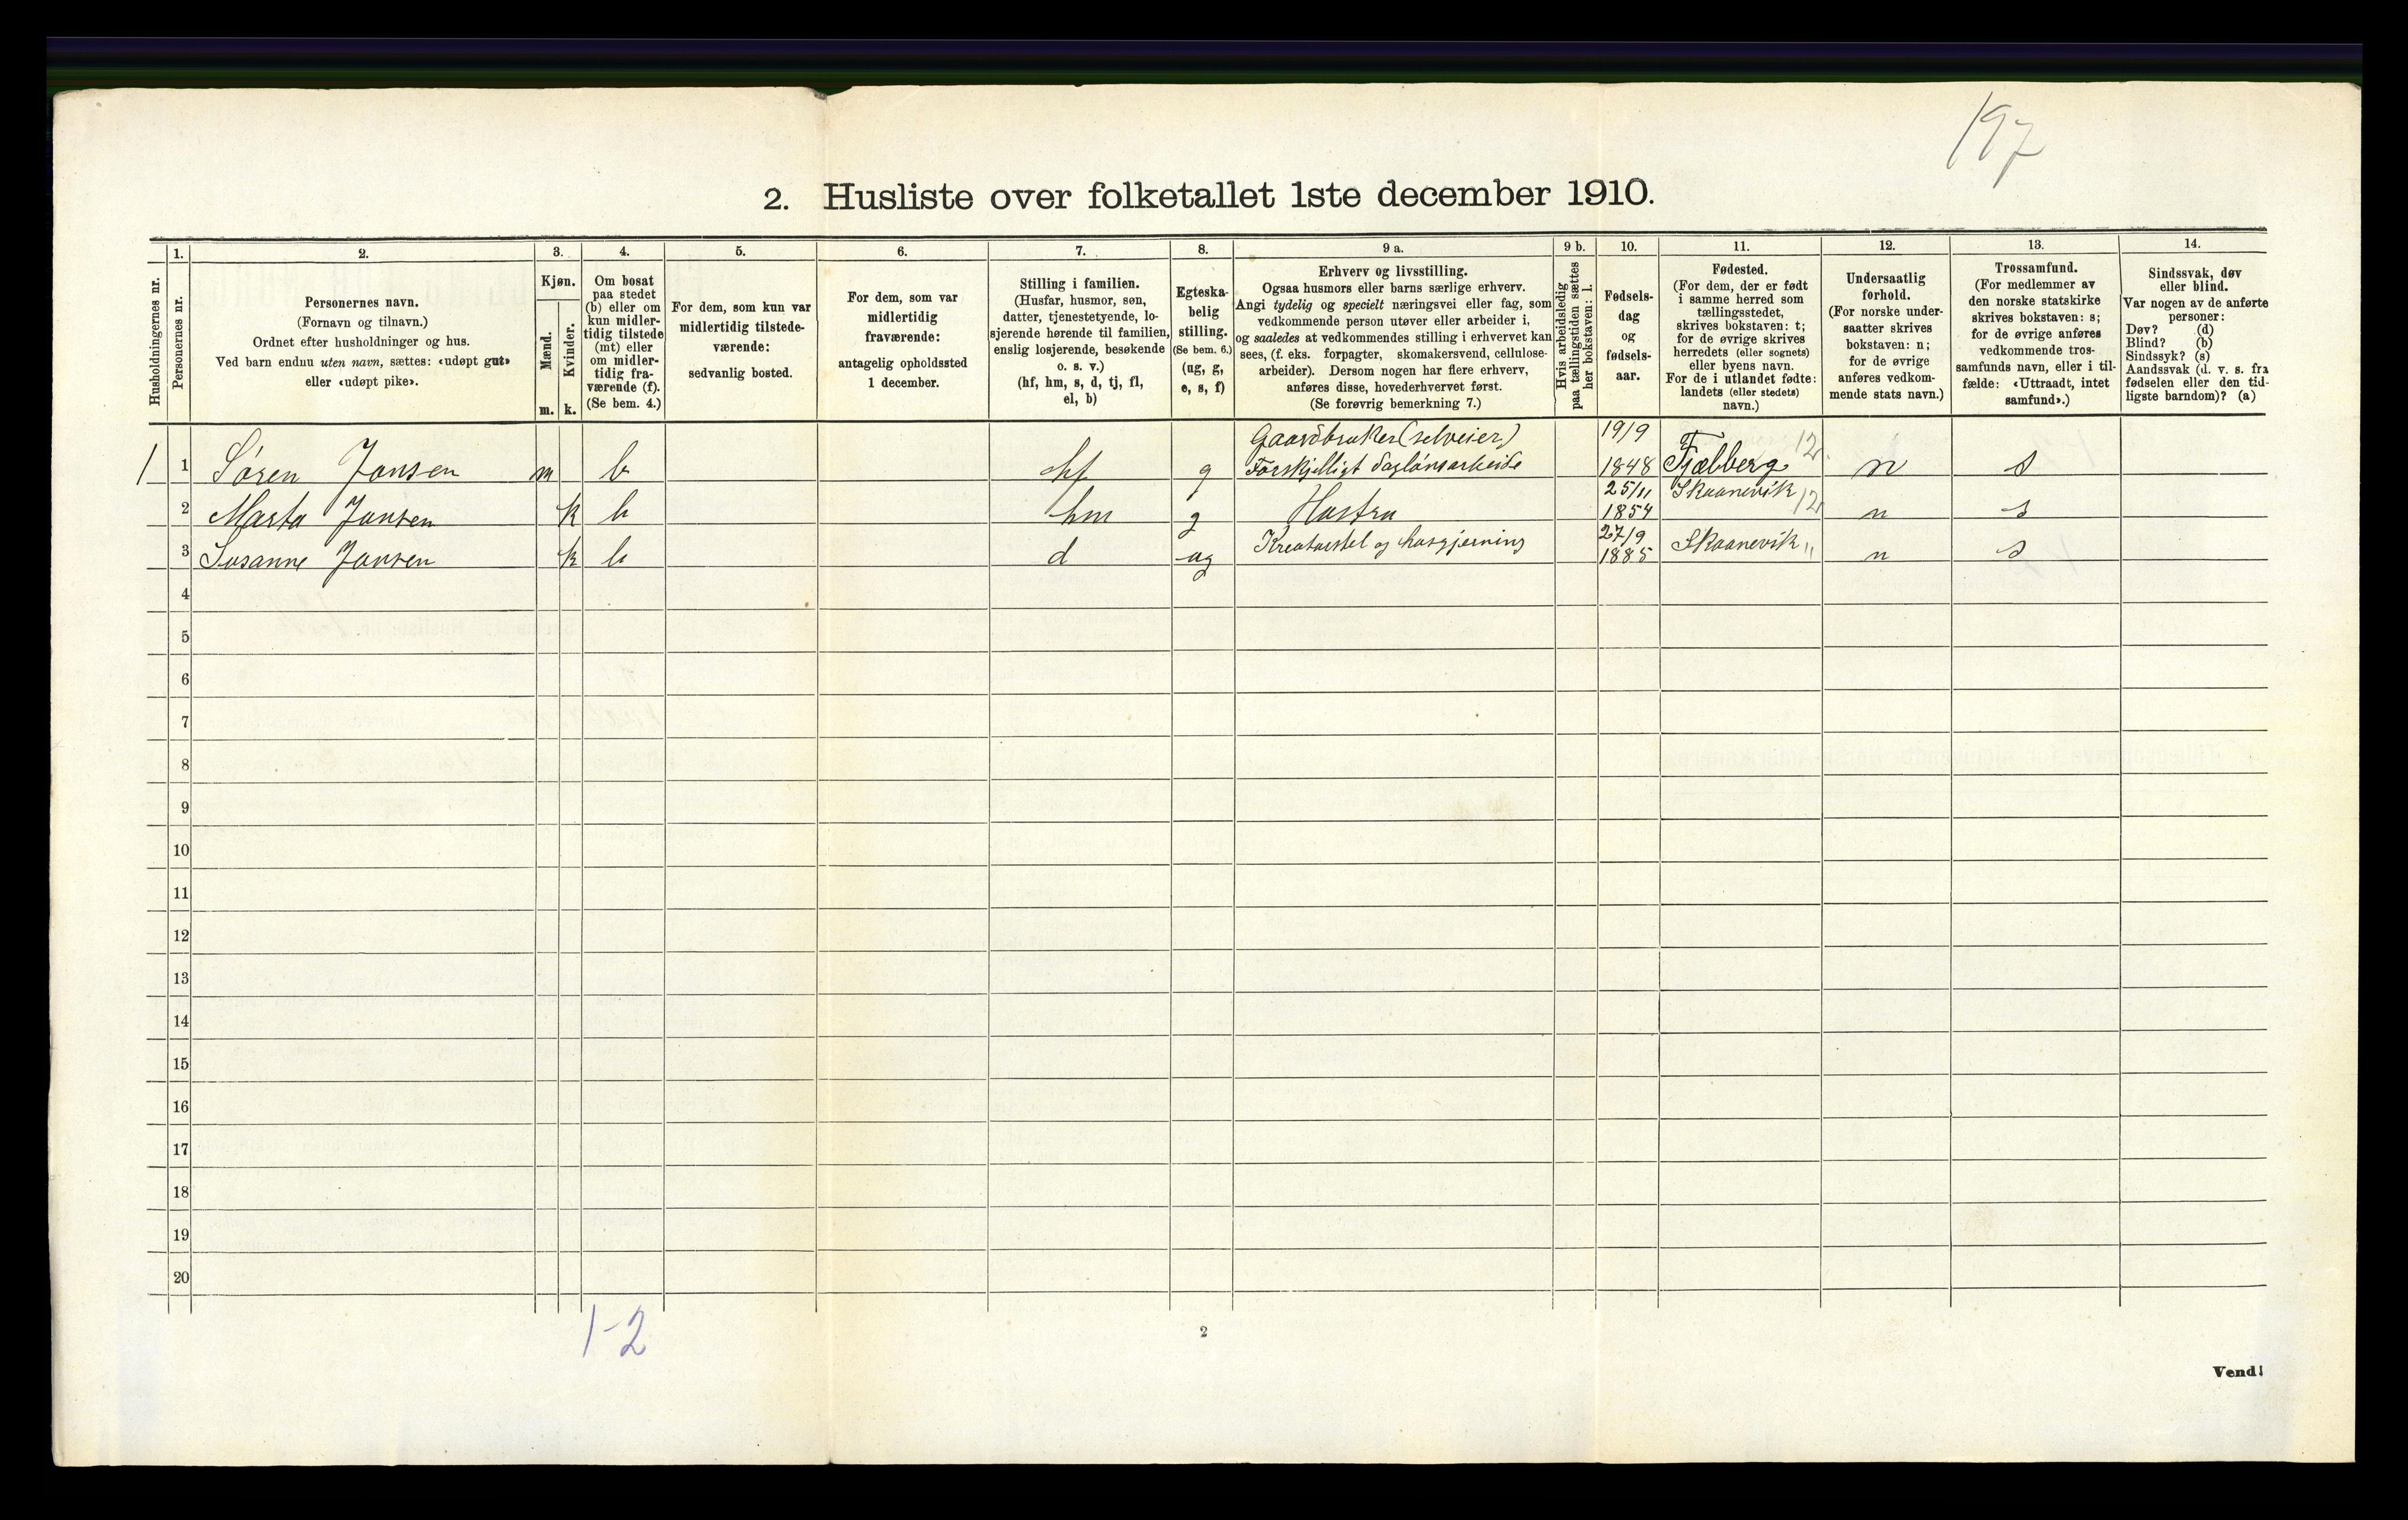 197
2. Husliste over folketallet 1ste december 1910.
Husholdningernes nr.
1.
Personernes nr.
2.
Personernes navn.
(Fornavn og tilnavn.)
Ordnet efter husholdninger og hus.
Ved barn endnu uten navn, sættes: «udøpt gut»
eller «udøpt pike».
3.
Kjøn.
Mænd.
Kvinder.
m. k.
4.
Om bosat
paa stedet
(b) eller om
kun midler-
tidig tilstede
(mt) eller
om midler-
tidig fra-
værende (f).
(Se bem. 4.)
5.
For dem, som kun var
midlertidig tilstede-
værende:
sedvanlig bosted.
6.
For dem, som var
midlertidig
fraværende:
antagelig opholdssted
1 december.
7.
Stilling i familien.
(Husfar, husmor, søn,
datter, tjenestetyende, lo-
sjerende hørende til familien,
enslig losjerende, besøkende
o. s. v.)
(hf, hm, s, d, tj, fl,
el, b)
8.
Egteska-
belig
stilling.
(Se bem. 6.)
(ug, g,
e, s, f)
9 a.
Erhverv og livsstilling.
Ogsaa husmors eller barns særlige erhverv.
Angi tydelig og specielt næringsvei eller fag, som
vedkommende person utøver eller arbeider i,
og saaledes at vedkommendes stilling i erhvervet kan
sees, (f. eks. forpagter, skomakersvend, cellulose-
arbeider). Dersom nogen har flere erhverv,
anføres disse, hovederhvervet først.
(Se forøvrig bemerkning 7.)
9 b.
Hvis arbeidsledig
paa tællingstiden sættes
her bokstaven: l.
10.
Fødsels-
dag
og
fødsels-
aar.
11.
Fødested.
(For dem, der er født
i samme herred som
tællingsstedet,
skrives bokstaven: t;
for de øvrige skrives
herredets (eller sognets)
eller byens navn.
For de i utlandet fødte:
landets (eller stedets)
navn.)
12.
Undersaatlig
forhold.
(For norske under-
saatter skrives
bokstaven: n;
for de øvrige
anføres vedkom-
mende stats navn.)
13.
Trossamfund.
(For medlemmer av
den norske statskirke
skrives bokstaven: s;
for de øvrige anføres
vedkommende tros-
samfunds navn, eller i til-
fælde: «Uttraadt, intet
samfund».)
14.
Sindssvak, døv
eller blind.
Var nogen av de anførte
personer:
Døv? (d)
Blind? (b)
Sindssyk? (s)
Aandssvak (d. v. s. fra
fødselen eller den tid-
ligste barndom)? (a)
Gaardbruker (selveier) 19/9
1 1 Søren Jansen m b hf g Forskjelligt dagløns arbeide 1848 Fjelberg 12 n s
25/11 Skaanevik
2 Marta Jansen k b hm g Hustru 1854 12 n s
27/9
3 Susanne Jansen k b d ug Kreaturstel og husgjerning 1885 Skaanevik " n s
4
5
6
7
8
9
10
11
12
13
14
15
16
17
18
19
20
1-2
2
Vend!